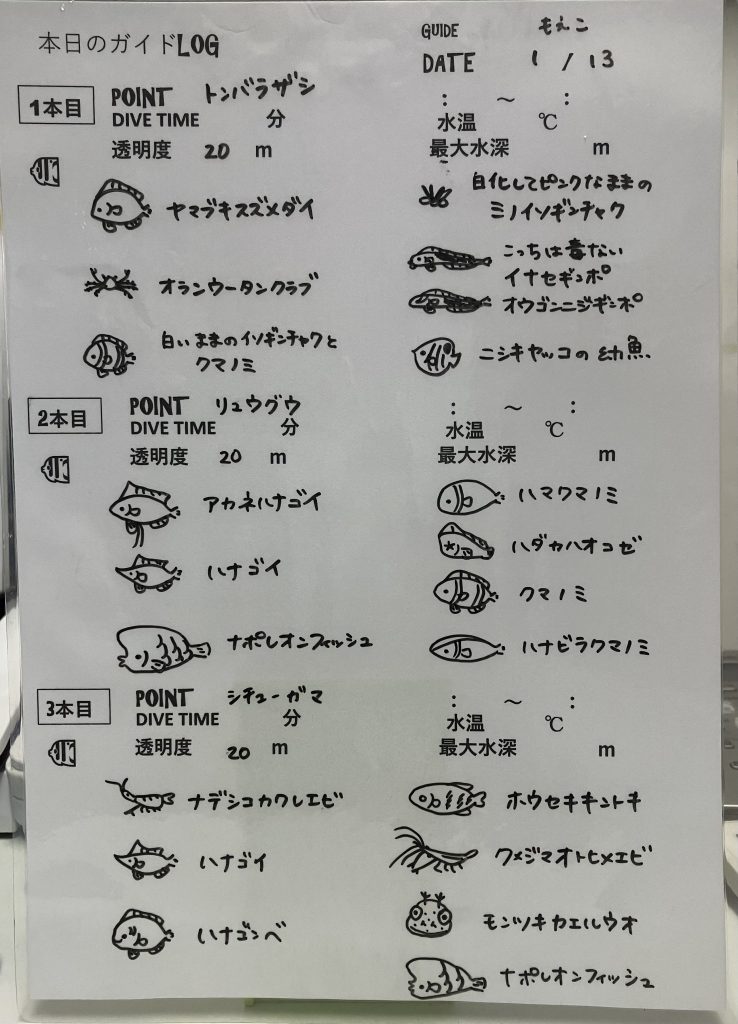 本日のガイドLOG
GUIDE もえこ
DATE 1 / 13
1本目
POINT トンバラザシ
DIVE TIME 分
透明度 20 m
: ～ :
水温 ℃
最大水深 m
ヤマブキスズメダイ
オランウータンクラブ
白いままのイソギンチャクと
クマノミ
白化してピンクなままの
ミノイソギンチャク
こっちは毒ない
イナセギンポ
オウゴンニジギンポ
ニシキヤッコの幼魚
2本目
POINT リュウグウ
DIVE TIME 分
透明度 20 m
: ～ :
水温 ℃
最大水深 m
アカネハナゴイ
ハナゴイ
ナポレオンフィッシュ
ハマクマノミ
ハダカハオコゼ
クマノミ
ハナビラクマノミ
3本目
POINT シチューガマ
DIVE TIME 分
透明度 20 m
: ～ :
水温 ℃
最大水深 m
ナデシコカクレエビ
ハナゴイ
ハナゴンベ
ホウセキキントキ
クメジマオトヒメエビ
モンツキカエルウオ
ナポレオンフィッシュ